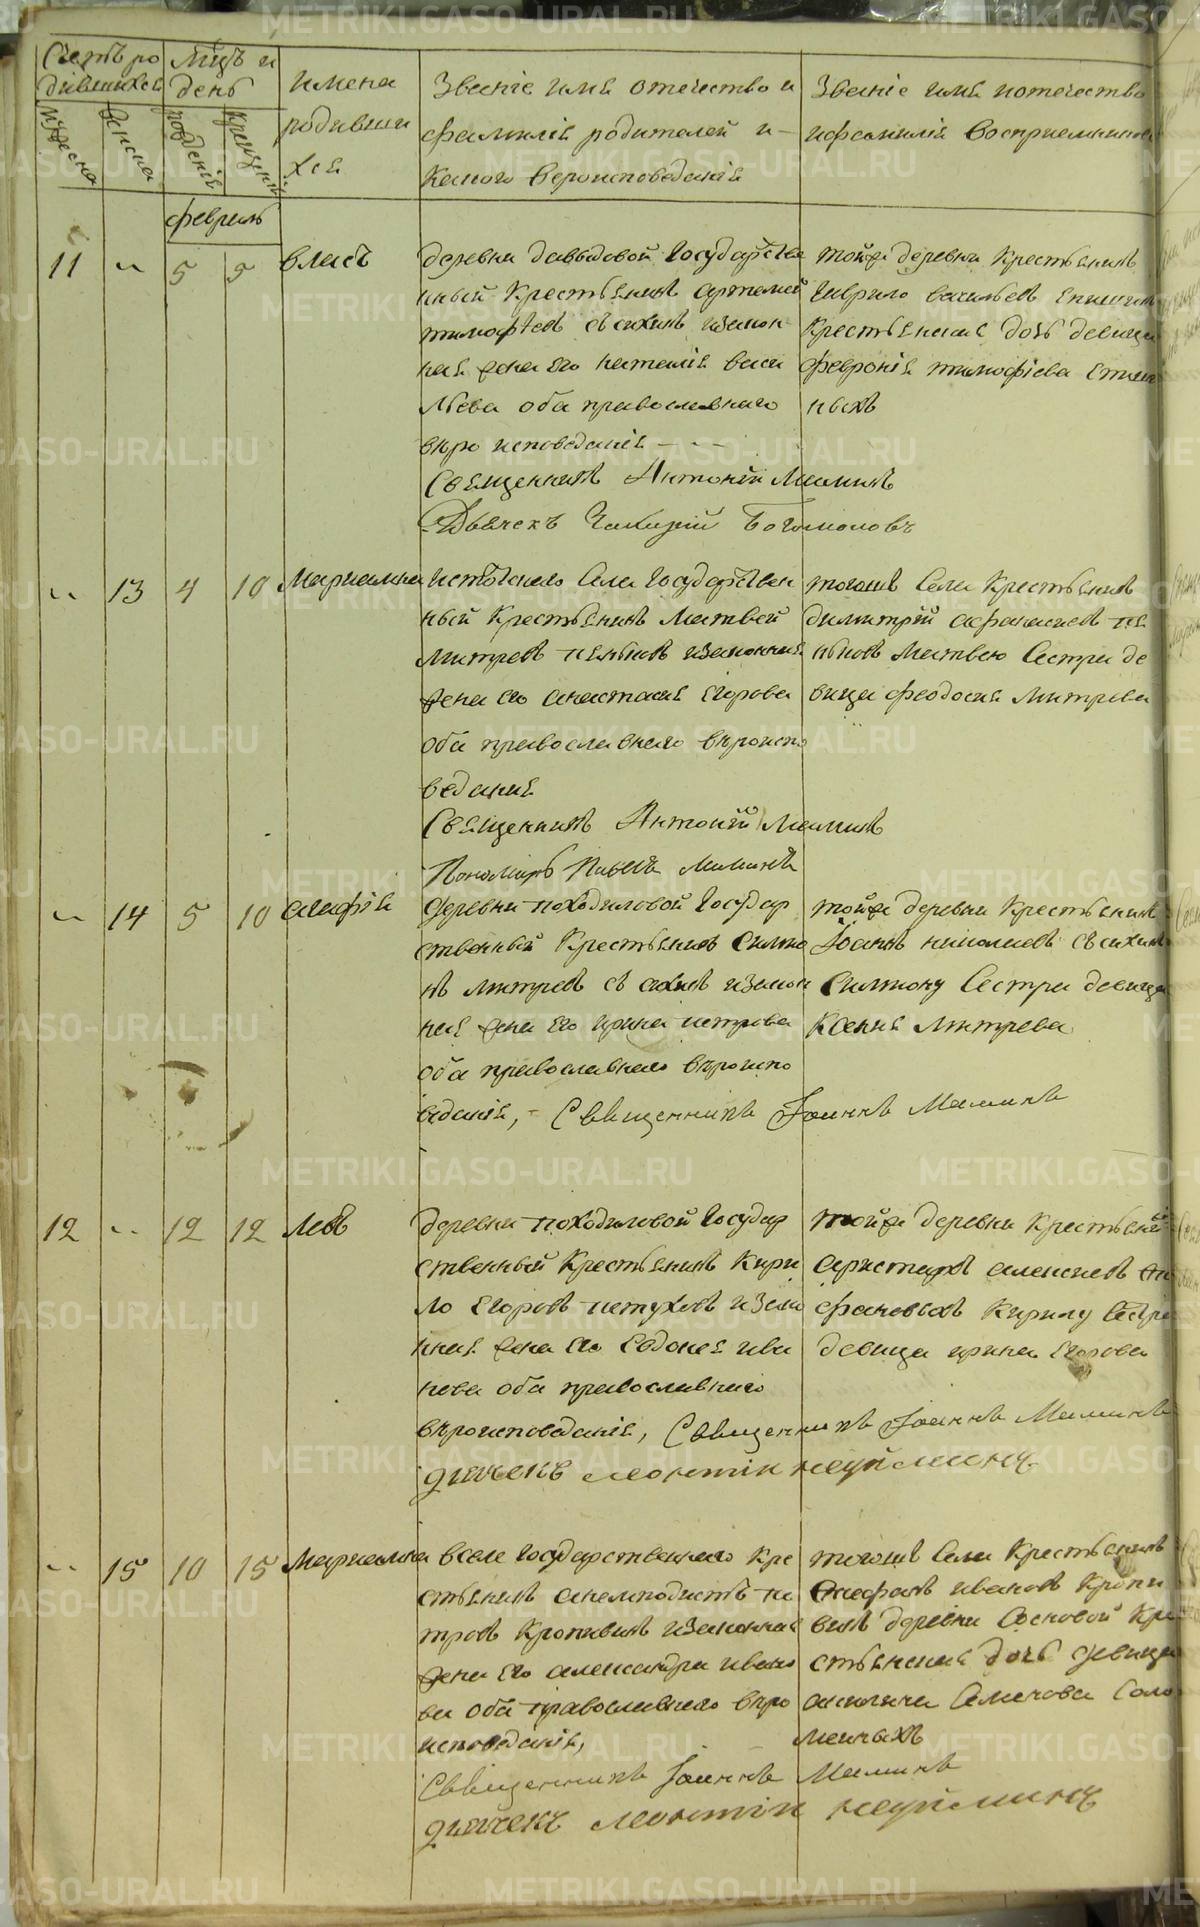 Счетъ ро
дившихся
Мцъ и
день
имена
родивши
хся
Званіе имя отечество и
фамилія родителей и
какого вероисповеданія
Званіе имя и отечество
и фамилія восприемников
мужеска
женска
рожденія
крещенія
февраль
11 " 5 5 власъ
деревни давыдовой Государстве
нный Крестьянинъ артемей
тимофѣевъ
изакон
ная жена его наталія васи
льева оба православнаго
вѣро исповеданія
Священникъ Антоній Маминъ
Дьячекъ Богомоловъ
тойже деревни Крестьянинъ
Гаврило васильевъ
Крестьянская дочь девица
февронія тимофіева
ныхъ
" 13 4 10 Мариамна
Села Государствен
ный Крестьянинъ Матвей
Митревъ изаконная
жена его анастасія Егорова
оба православнаго вѣроиспо
ведания
Священникъ Антоній Маминъ
Пономарь Павелъ Маминъ
тогожъ Села Крестьянинъ
димитрій афанасиевъ пе
Матвею Сестра де
вица феодосия Митрева
" 14 5 10 агафія
Деревни походиловой Государ
ственный Крестьянинъ Симио
нъ митревъ изакон
ная жена его ирина петрова
оба православнаго вѣроиспо
веданія, - Священникъ Іоаннъ Маминъ
тойже деревни Крестьянинъ
Іоаннъ николаевъ
Симиону Сестра девица
Ксения Митрева
12 " 12 12 Левъ
деревни походиловой Государ
ственный Крестьянинъ Кири
ло Егоровъ петуховъ изако
нная жена его Евдокея ива
нова оба православнаго
вѣроисповеданія, Священникъ Іоаннъ Маминъ
дьячекъ леонтій неуйминъ
тойже деревни Крестьянинъ
аристархъ алексиевъ
Кирилу Сестра
девица ирина Егорова
" 15 10 15 Мариамна
в селе Государственнаго Кре
стьянинъ анемподистъ пе
тровъ Кропивинъ изаконная
жена его александра ивано
ва оба православнаго вѣро
исповеданія,
Священникъ Іоаннъ Маминъ
дьячекъ леонтій неуйминъ
тогожъ Села Крестьянинъ
Стефанъ ивановъ Кропи
винъ деревни Сосновой Кре
стьянская дочь девица
акилина Семенова Соло
меиныхъ
METRIKI.GASO-URAL.RU